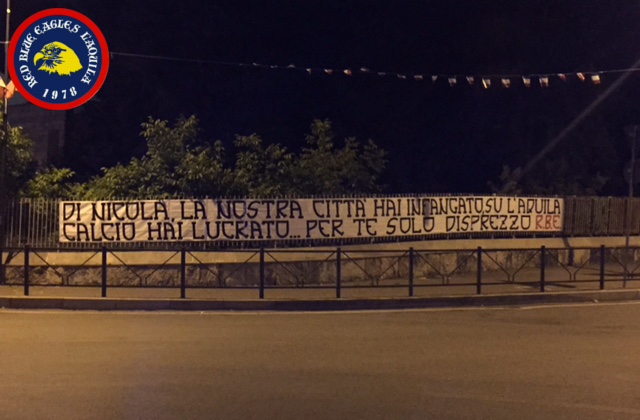 RED BLUE EAGLES L'AQUILA
1978
DI NICOLA, LA NOSTRA CITTÀ HAI INFANGATO, SU L'AQUILA
CALCIO HAI LUCRATO... PER TE SOLO DISPREZZO RBE